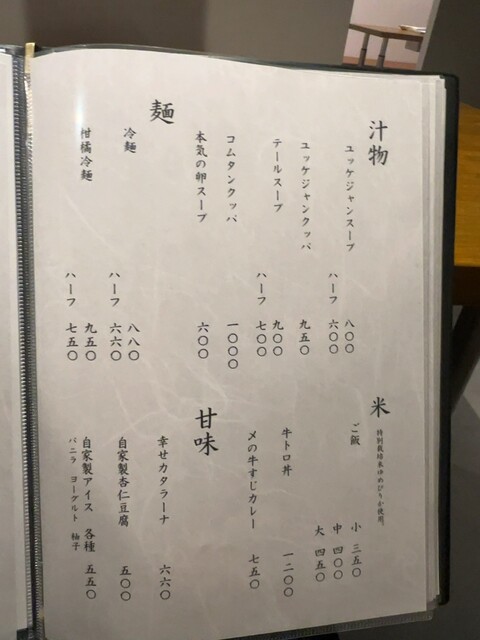 汁物
ユッケジャンスープ 八〇〇
ハーフ 六〇〇
ユッケジャンクッパ 九五〇
テールスープ 九〇〇
ハーフ 七〇〇
コムタンクッパ 一〇〇〇
本気の卵スープ 六〇〇
麺
冷麺 八八〇
ハーフ 六六〇
柑橘冷麺 九五〇
ハーフ 七五〇
米
特別栽培米ゆめぴりか使用。
ご飯 小 三五〇
中 四〇〇
大 四五〇
牛トロ丼 一二〇〇
〆の牛すじカレー 七五〇
甘味
幸せカタラーナ 六六〇
自家製杏仁豆腐 五〇〇
自家製アイス 各種 五五〇
バニラ ヨーグルト 柚子